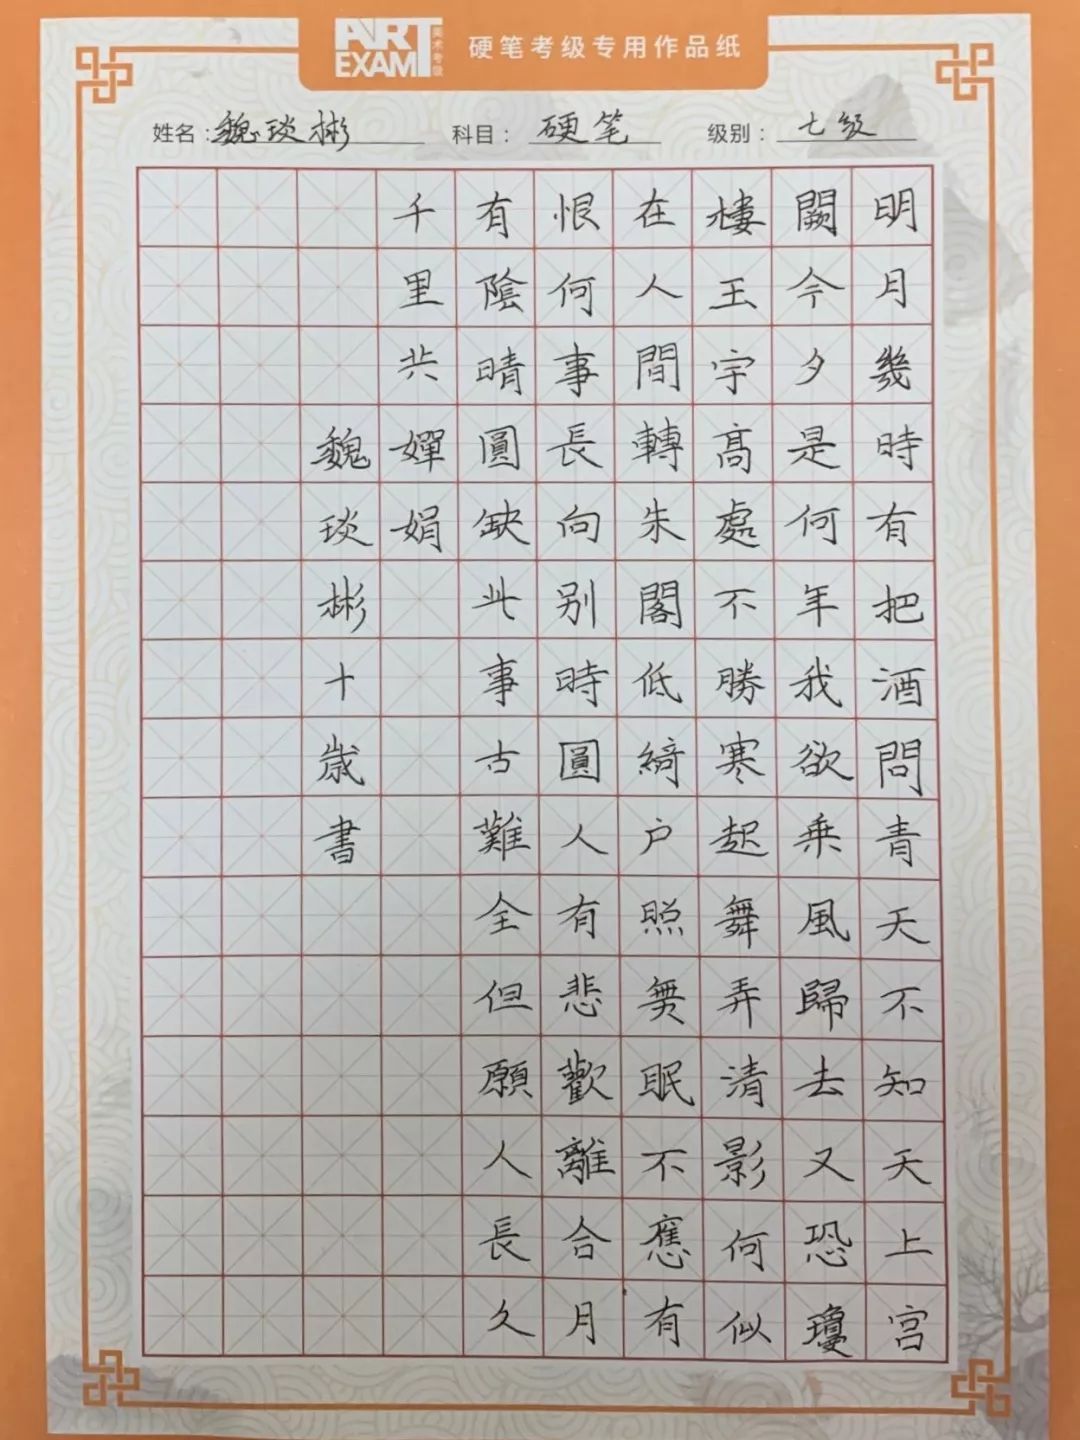 ART EXAM 美术考级
硬笔考级专用作品纸
姓名：魏琰彬 科目：硬笔 级别：七级
明月幾時有把酒問青天不知天上宫
闕今夕是何年我欲乗風歸去又恐瓊
樓王宇高處不勝寒起舞弄清影何似
在人間轉朱閣低綺户照無眠不應有
恨何事長向别時圓人有悲歡離合月
有陰晴圓缺此事古難全但願人長久
千里共嬋娟
魏琰彬十歲書